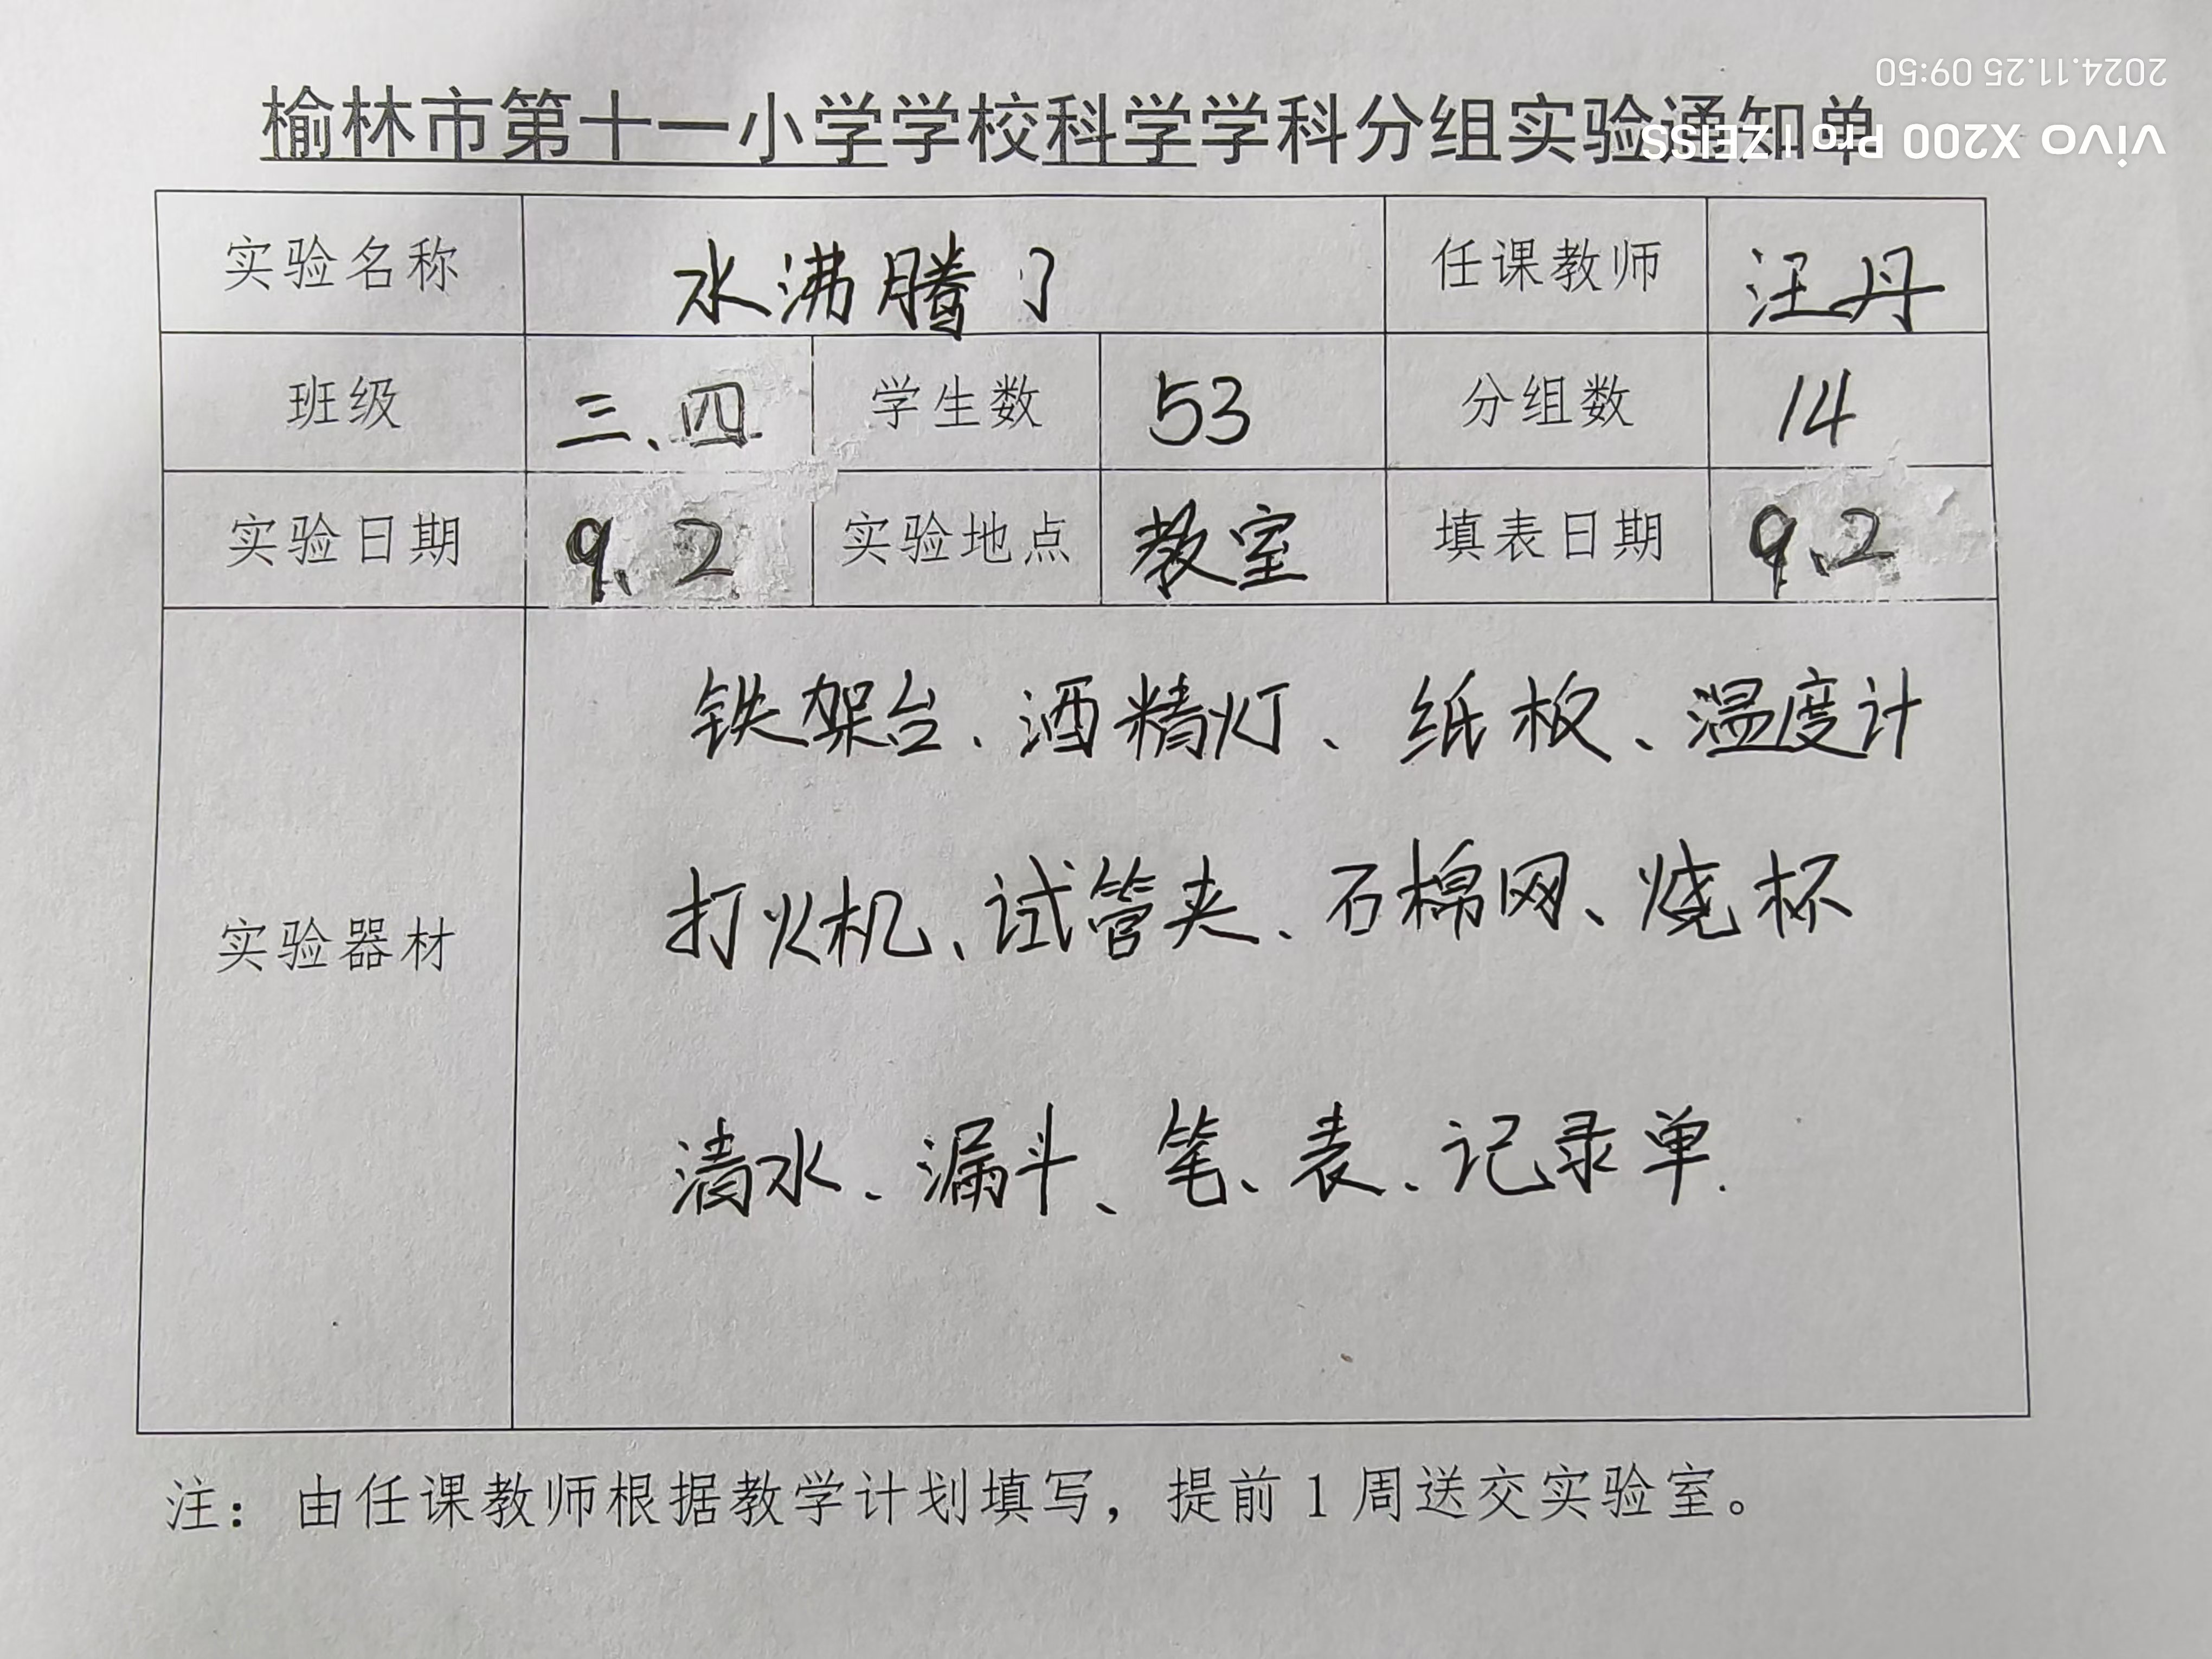 2024.11.25 09:50
vivo X200 Pro | ZEISS
榆林市第十一小学学校科学学科分组实验通知单
实验名称 水沸腾了 任课教师 汪丹
班级 三、四 学生数 53 分组数 14
实验日期 9.2 实验地点 教室 填表日期 9.2
铁架台、酒精灯、纸板、温度计
打火机、试管夹、石棉网、烧杯
实验器材
清水、漏斗、笔、表、记录单.
注：由任课教师根据教学计划填写，提前1周送交实验室。